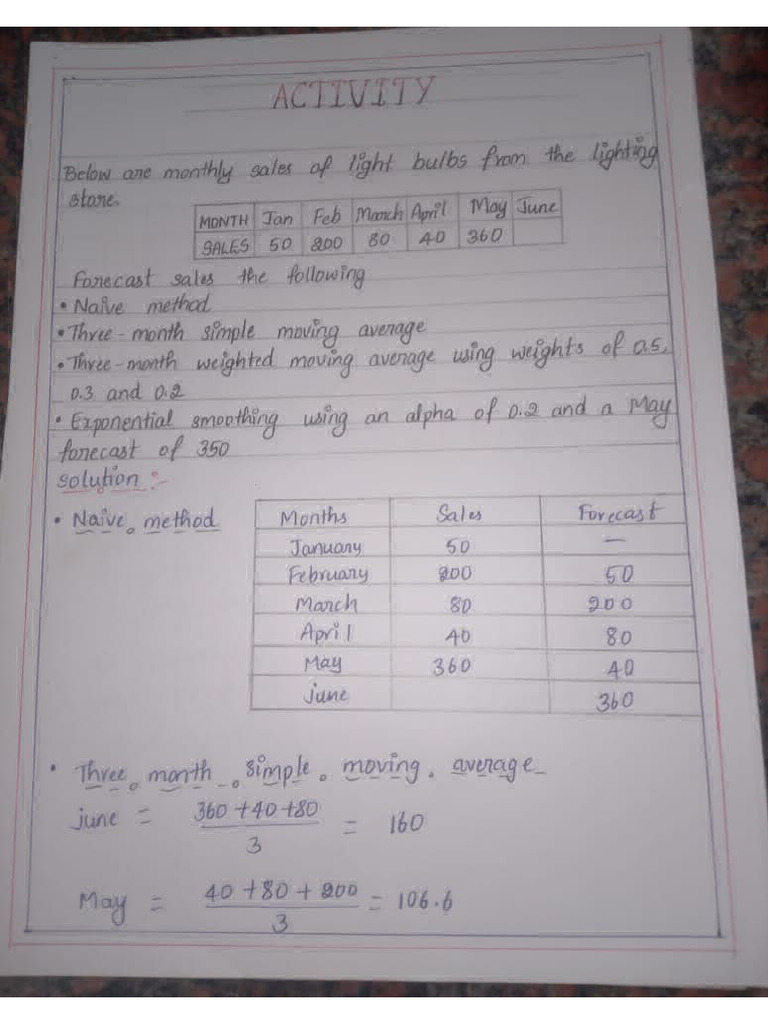 ACTIVITY
Below are monthly sales of light bulbs from the lighting
store.
MONTH Jan Feb March April May June
SALES 50 200 80 40 360
Forecast sales the following
• Naive method
• Three-month simple moving average
• Three-month weighted moving average using weights of 0.5,
0.3 and 0.2
• Exponential smoothing using an alpha of 0.2 and a May
forecast of 350
solution :-
• Naive method
Months Sales Forecast
January 50 —
February 200 50
March 80 200
April 40 80
May 360 40
june 360
• Three month simple moving average
june = 360 + 40 + 80 / 3 = 160
May = 40 + 80 + 200 / 3 = 106.6